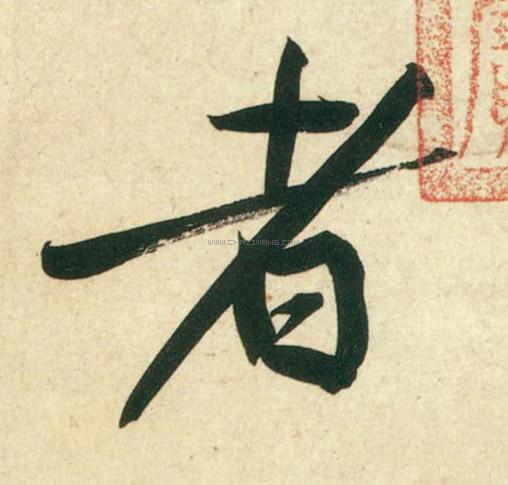 者
WWW.CHAZIWANG.COM